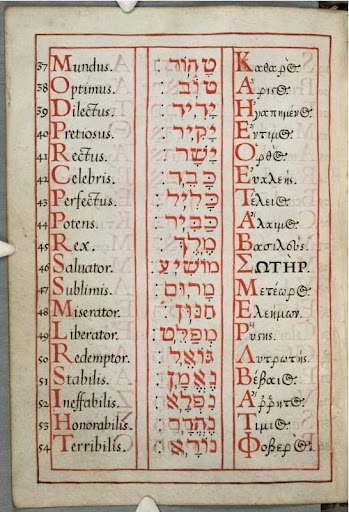 37 Mundus. טָהוֹר Καθαρος.
38 Optimus. טוֹב Αριςος.
39 Dilectus. יָדִיד Ηγαπημένος.
40 Pretiosus. יַקִּיר Εντιμος.
41 Rectus. יָשָׁר Ορθος.
42 Celebris. Ευκλεής.
43 Perfectus. כָּלִיל Τέλειος.
44 Potens. כַּבִּיר Αλκιμος.
45 Rex. מֶלֶךְ Βασιλεύς.
46 Saluator. מוֹשִׁיעַ ΣΩΤΗΡ.
47 Sublimis. מָרוֹם Μετέωρος.
48 Miserator. חַנּוּן Ελεημων.
49 Liberator. מְפַלֵּט Ρύςης.
50 Redemptor. גּוֹאֵל Λυτρωτής.
51 Stabilis. נֶאֱמָן Βέβαιος.
52 Ineffabilis. נִפְלָא Αῤῥητος.
53 Honorabilis. נֶהְדָּר Τιμιος.
54 Terribilis. נוֹרָא Φοβερος.